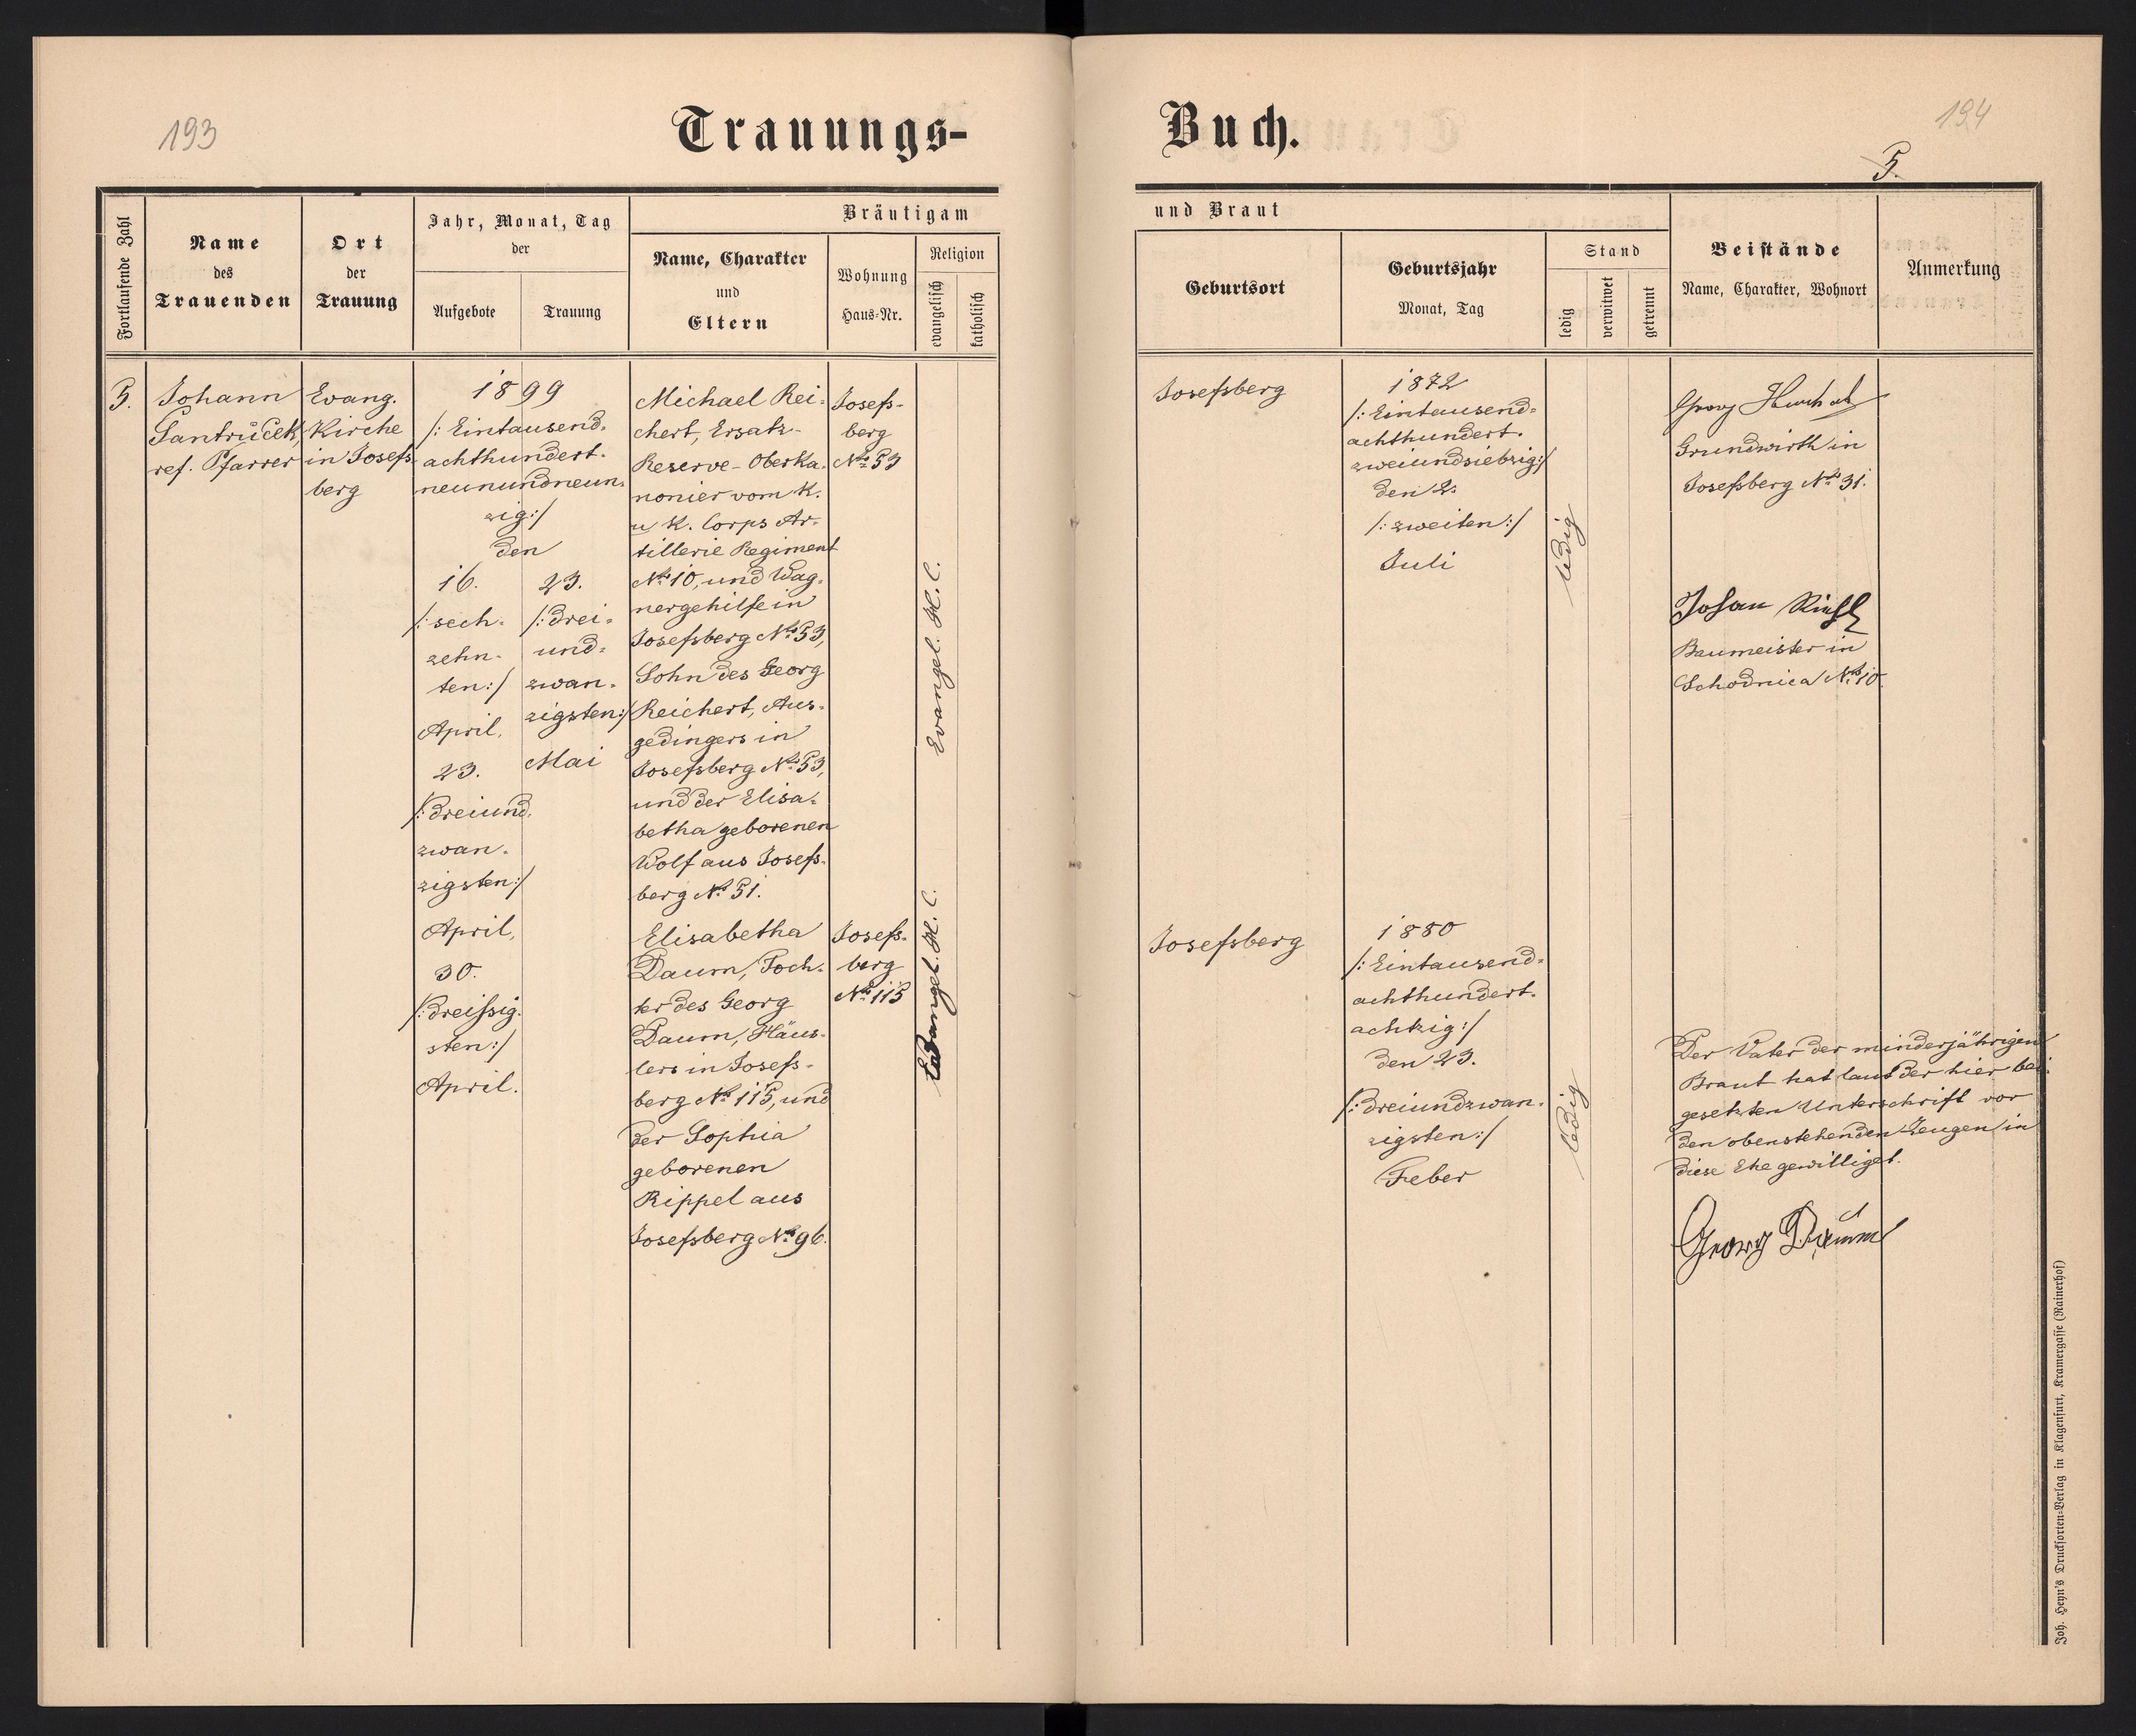 193
Trauungs-
Fortlaufende Zahl
Name
des
Trauenden
Ort
der
Trauung
Jahr, Monat, Tag
der
Aufgebote
Trauung
Bräutigam
Name, Charakter
und
Eltern
Wohnung
Haus-Nr.
Religion
evangelisch
katholisch
5.
Johann
Santrůček,
ref. Pfarrer
Evang.
Kirche
in Josefs-
berg
1899
/: Eintausend-
achthundert-
neunundneun-
zig :/
den
16.
/: sech-
zehn-
ten :/
April,
23.
/: dreiund-
zwan-
zigsten :/
April,
30.
/: dreißig-
sten :/
April.
23.
/: drei-
und-
zwan-
zigsten :/
Mai
Michael Rei-
chert, Ersatz-
Reserve-Oberka-
nonier vom k.
u k. Corps Ar-
tillerie Regiment
No 10, und Wag-
nergehilfe in
Josefsberg No 53,
Sohn des Georg
Reichert, Aus-
gedingers in
Josefsberg No 53,
und der Elisa-
betha geborenen
Wolf aus Josefs-
berg No 51.
Josefs-
berg
No 53
Evangel. H. C.
Elisabetha
Daum, Toch-
ter des Georg
Daum, Häus-
lers in Josefs-
berg No 115, und
der Sophia
geborenen
Rippel aus
Josefsberg No 96.
Josefs-
berg
No 115
Evangel. H. C.
Buch.
194
5.
und Braut
Geburtsort
Geburtsjahr
Monat, Tag
Stand
ledig
verwitwet
getrennt
Beistände
Name, Charakter, Wohnort
Anmerkung
Josefsberg
1872
/: Eintausend-
achthundert-
zweiundsiebzig :/
den 2.
/: zweiten :/
Juli
ledig
Georg
Grundwirth in
Josefsberg No 31.
Johan
Baumeister in
Schodnica No 10.
Josefsberg
1880
/: Eintausend-
achthundert-
achtzig :/
den 23.
/: dreiundzwan-
zigsten :/
Feber
ledig
Der Vater der minderjährigen
Braut hat laut der hier bei-
gesetzten Unterschrift vor
den obenstehenden Zeugen in
diese Ehe gewilliget.
Georg Daum
Joh. Heyn's Drucksorten-Verlag in Klagenfurt, Kramergasse (Rainerhof)